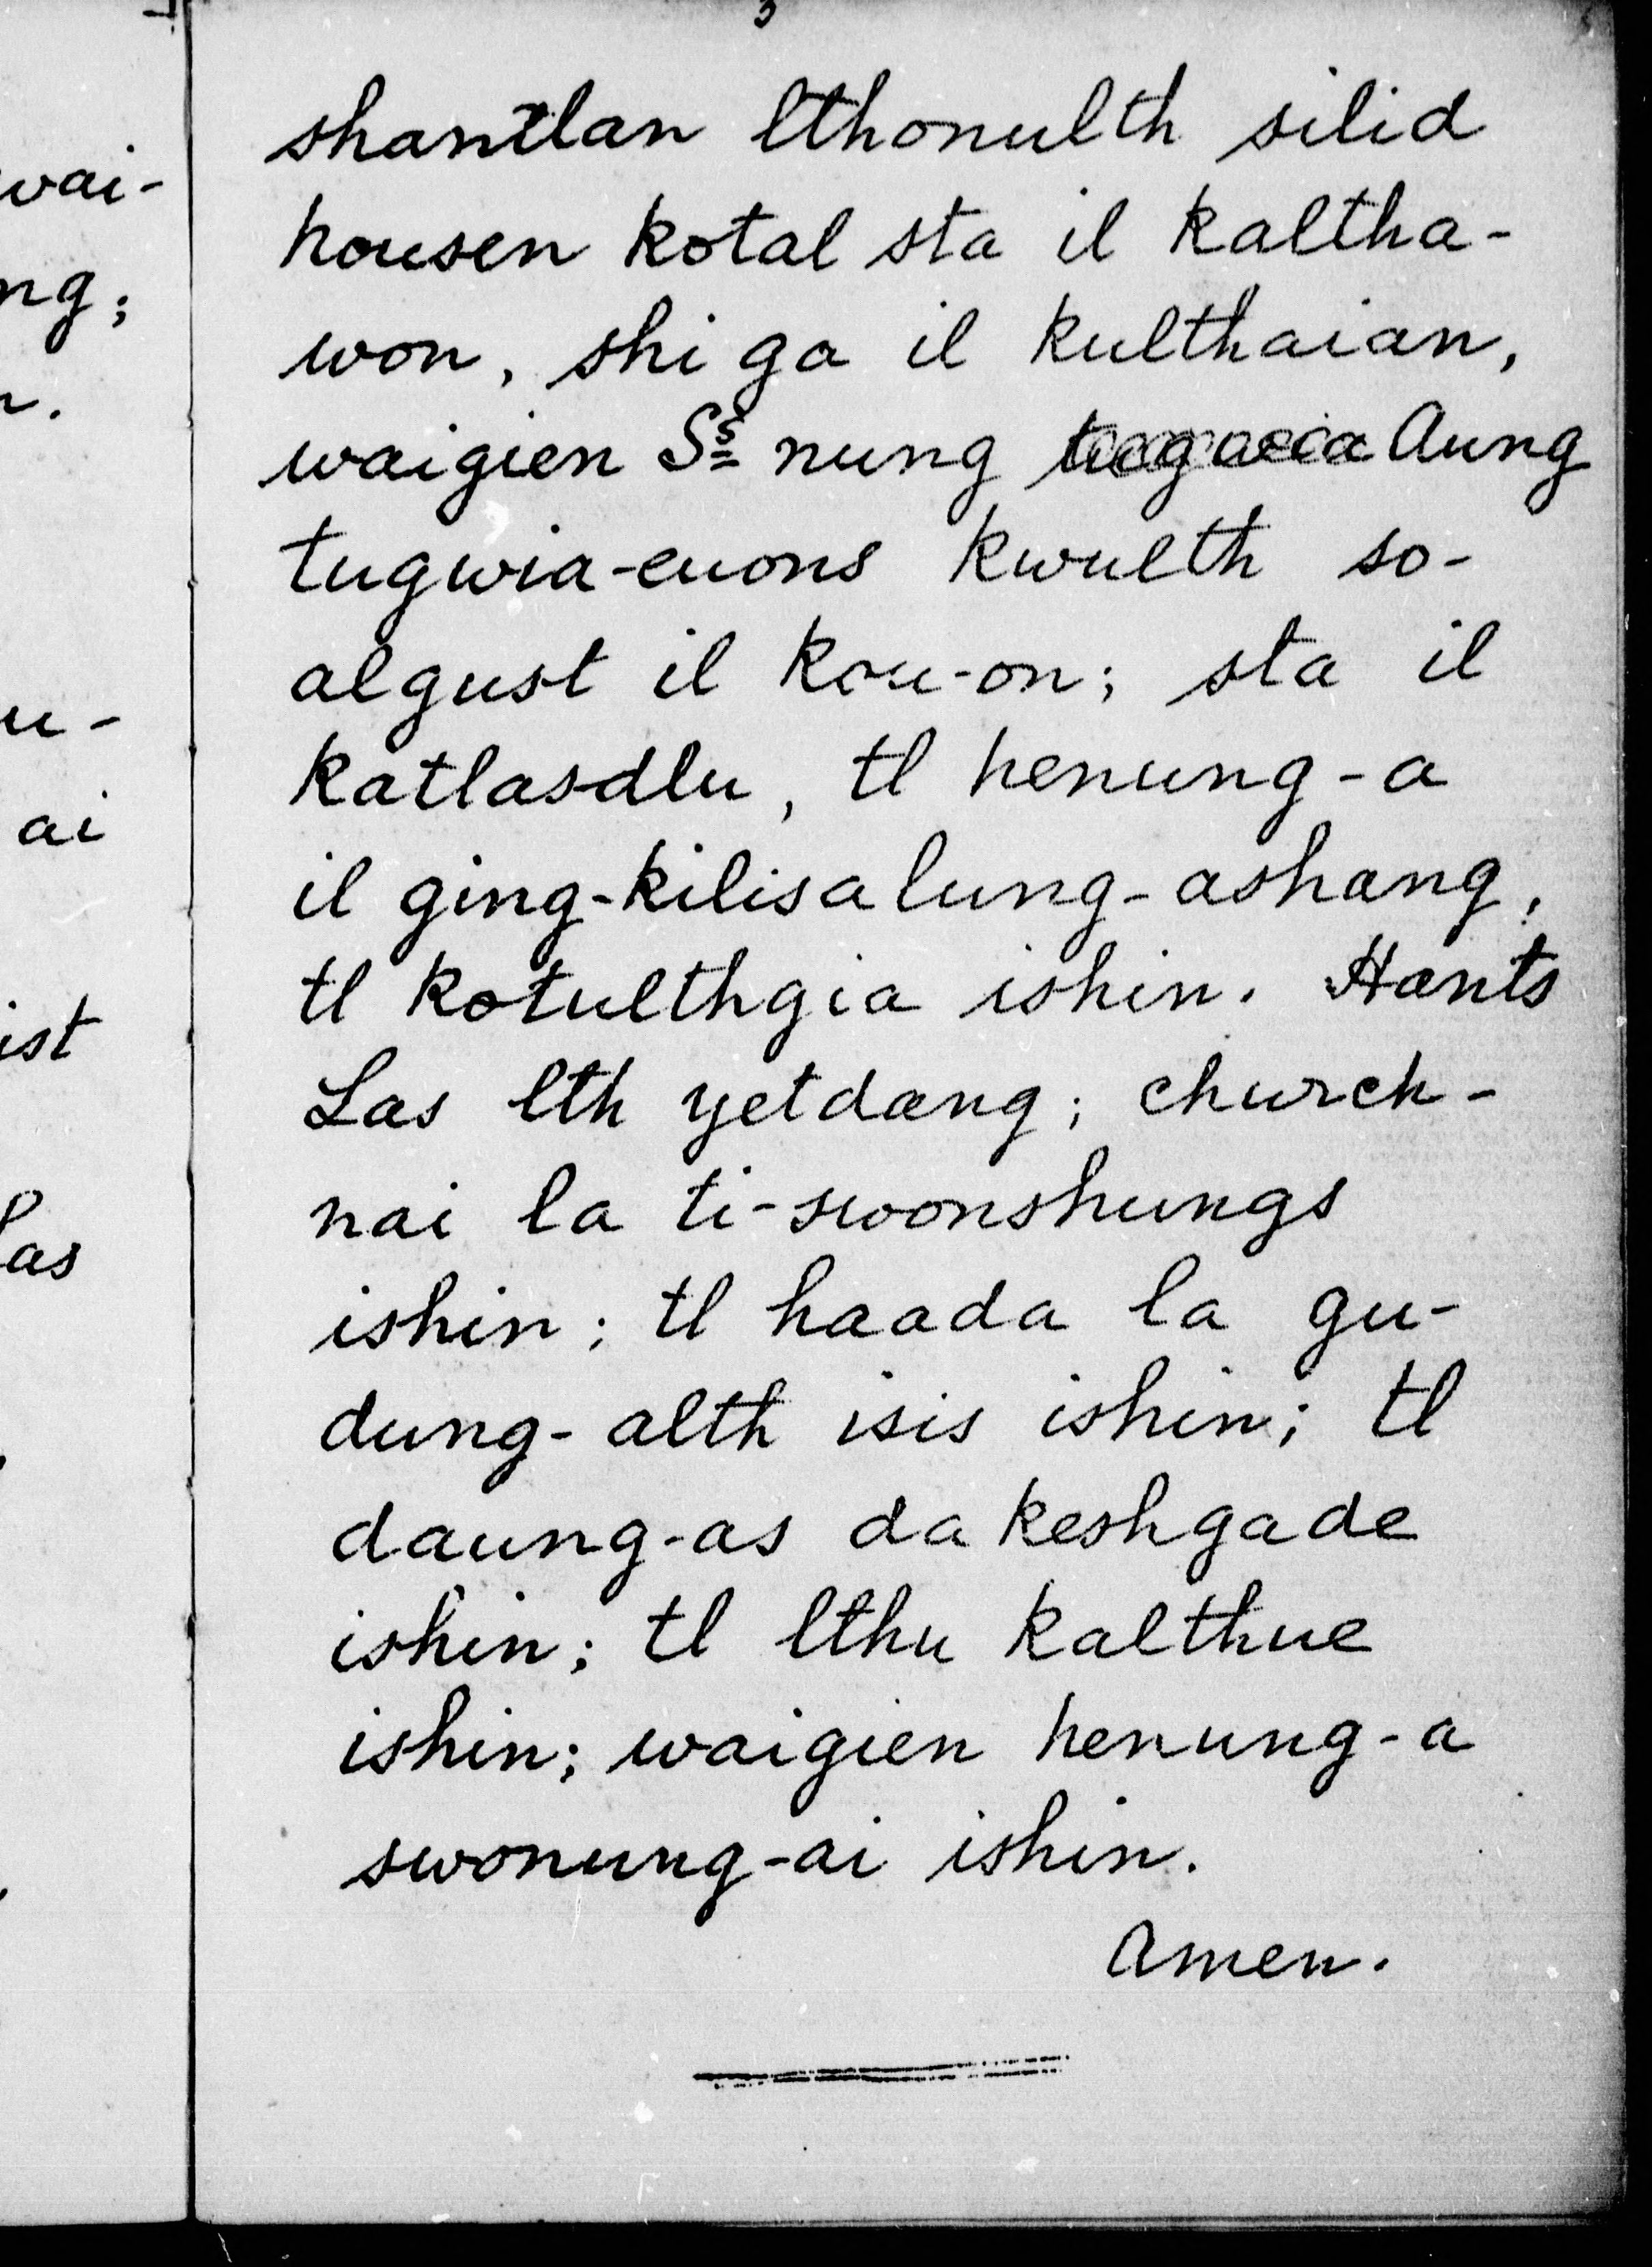 wai-
ng;
u-
ai
ist
as
shantlan lthonulth silid
housen kotal sta il kaltha-
won, shi ga il kulthaian,
waigien Ss nung Aung
tugwia-euons kwulth so-
algust il kou-on; sta il
katlasdlu, tl henung-a
il ging-kilisalung-ashang,
tl kotulthgia ishin. Hants
Las lth yetdang; church-
nai la ti-swonshungs
ishin; tl haada la gu-
dung-alth isis ishin; tl
daung-as da keshgade
ishin; tl lthu kalthue
ishin; waigien henung-a
swonung-ai ishin.
Amen.